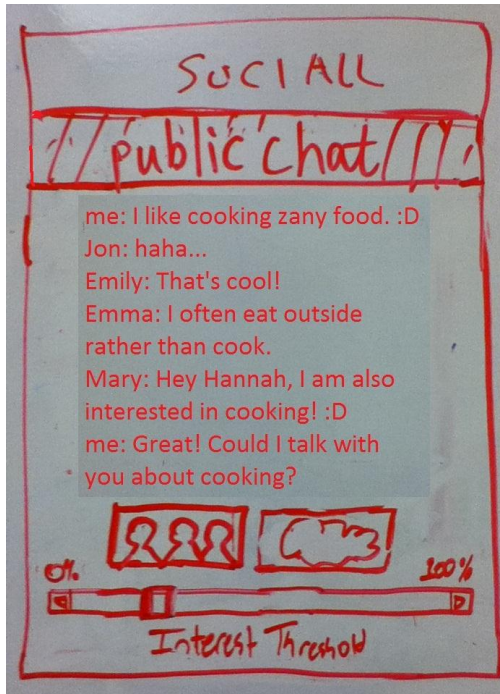 SOCIALL
public chat
me: I like cooking zany food. :D
Jon: haha...
Emily: That's cool!
Emma: I often eat outside
rather than cook.
Mary: Hey Hannah, I am also
interested in cooking! :D
me: Great! Could I talk with
you about cooking?
0% 100%
Interest Threshold